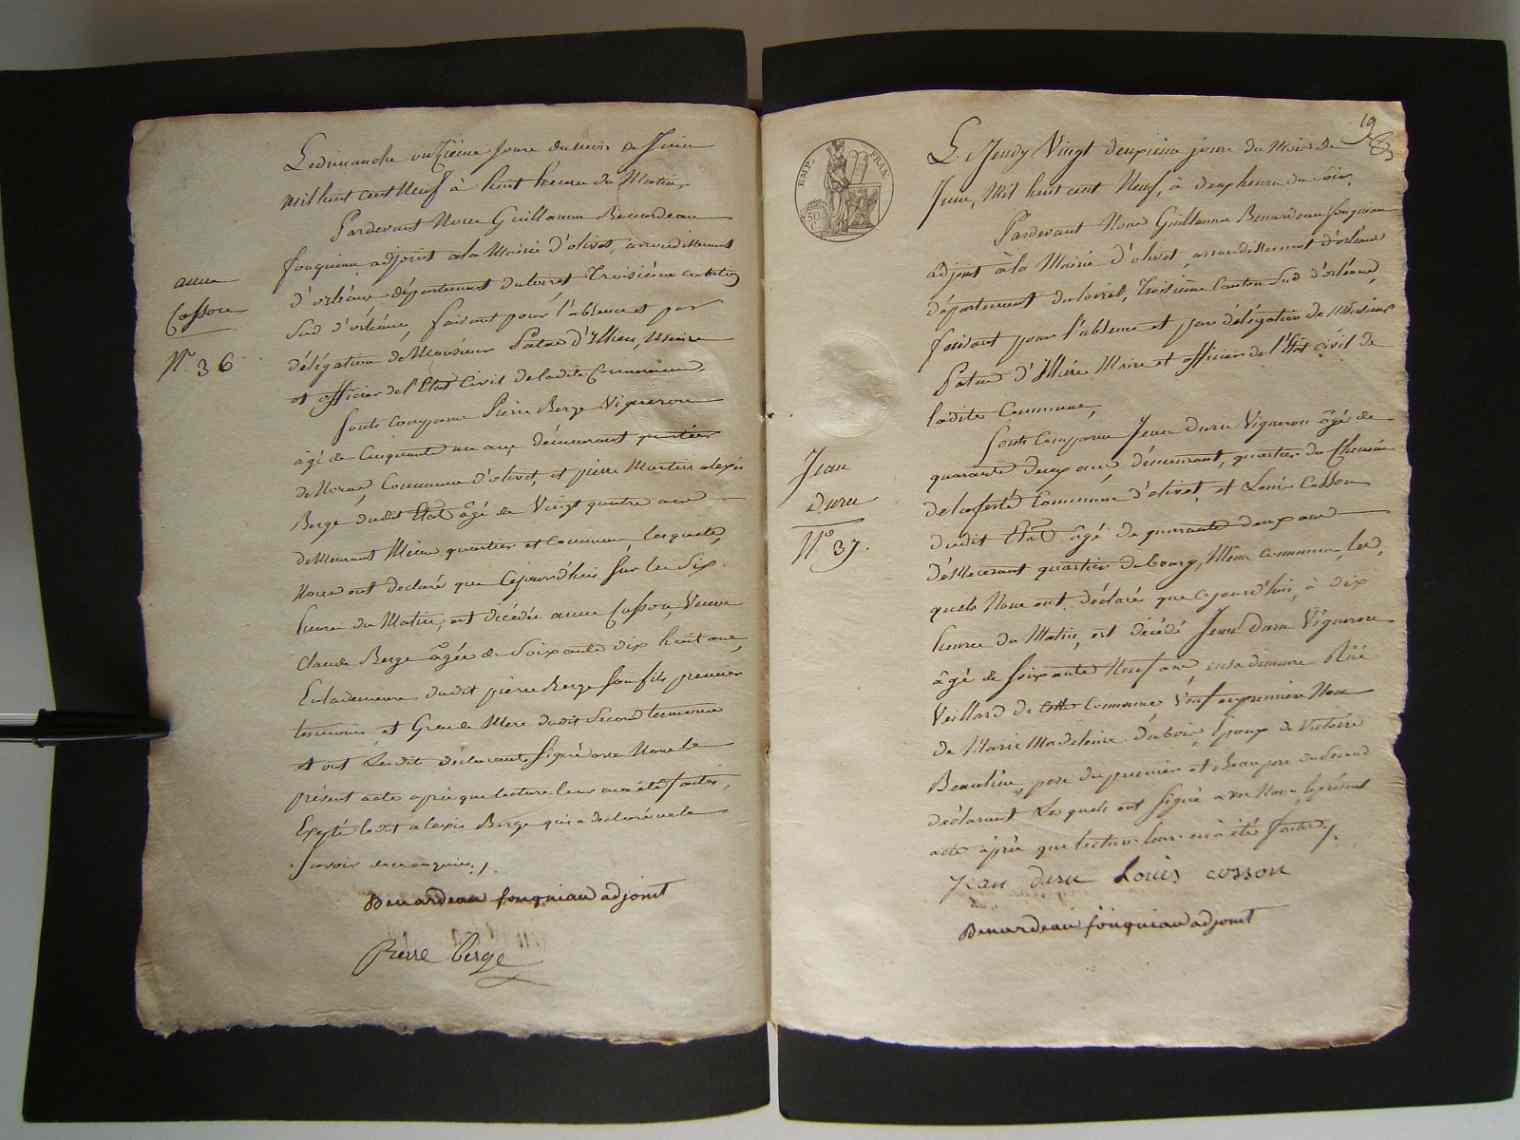 Le dimanche onzieme Jour du mois de Juin
mil huit cent Neuf à huit heures du Matin,
Pardevant Nous Guillaume Benardeau
fouquiau adjoint à la Mairie d'olivet, arrondissement
d'orléans département du loiret Troisième canton
Sud d'orléans, faisant pour l'absence et par
délégation de Monsieur Patas d'Illiers, Maire
et officier de l'Etat Civil de ladite Commune,
Sont Comparus Pierre Berge Vigneron
âgé de Cinquante un ans demeurant quartier
de Commune d'olivet, et pierre Martin alexis
Berge dudit Etat âgé de Vingt quatre ans
demeurant Même quartier et Commune, lesquels,
Nous ont declaré que Cejourd'hui sur les Six
heures du Matin, est décédée anne Cosson, Veuve
Claude Berge âgée de Soixante dix huit ans,
En la demeure dudit pierre Berge son fils premier
temoins et Grande Mere dudit Second temoins
et ont Lesdits déclarants Signé avec Nous le
présent acte après que lecture leur en a été faites,
Excepté ledit alexis Berge qui a declaré ne le
scavoir de ce enquis./.
Benardeau fouquiau adjoint
Pierre berge
anne
Cosson
N° 36
19
EMP. FRAN.
50
C.
Le Jeudy Vingt deuxieme jour du Mois de
Juin, Mil huit cent Neuf, à deux heures du Soir,
Pardevant Nous Guillaume Benardeau fouquiau
adjoint à la Mairie d'olivet, arrondissement d'orléans
département du loiret, Troisieme Canton Sud d'orléans,
faisant pour l'absence et par délégation de Monsieur
Patas d'Illiers Maire et officier de l'Etat Civil de
ladite Commune,
Sont Comparus Jean Duru Vigneron âgé de
quarante deux ans, demeurant, quartier du Chemin
de la ferté Commune d'olivet, et Louis Cosson
dudit Etat âgé de quarante deux ans
demeurant quartier du bourg, Même commune, les,
quels Nous ont déclarés que Cejourd'hui, à dix
heures du Matin, est décédé Jean Duru Vigneron
âgé de soixante Neuf ans, en sa demeure Rüe
Veillard de Commune Veuf en premiere Noce
de Marie Madeleine duboi, Epoux de Victoire
Beaulieu, pere du premier et Beaupere du Second
déclarant Lesquels ont Signé avec Nous le présent
acte après que lecture leur en a été faites./.
Jean duru Louis cosson
Benardeau fouquiau adjoint
Jean
Duru
N° 37.